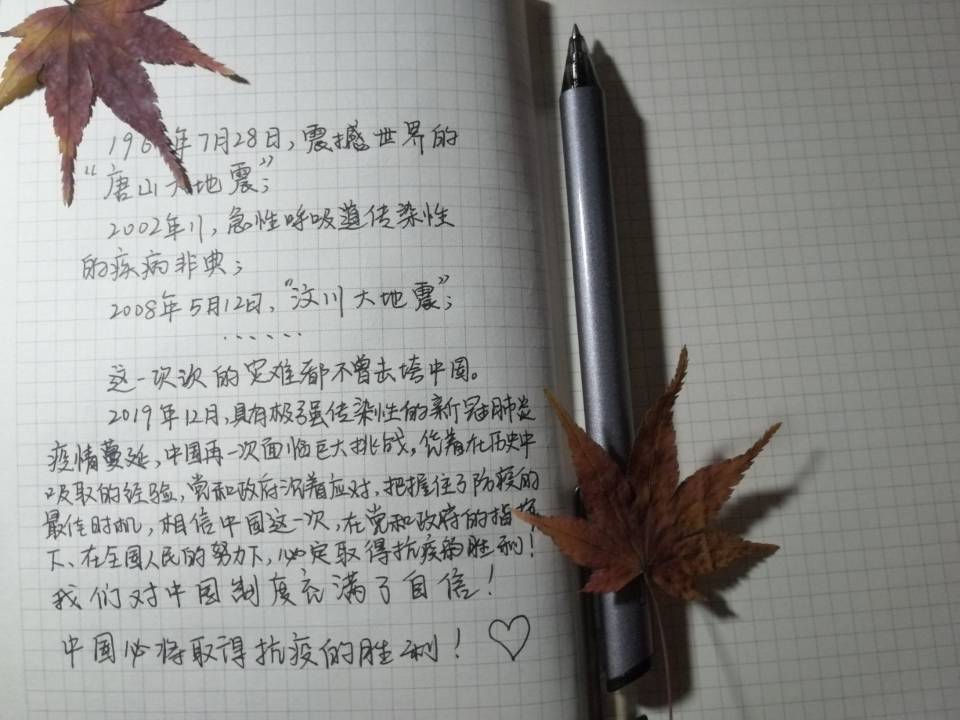 196 年7月28日，震撼世界的
“唐山大地震”；
2002年11，急性呼吸道传染性
的疾病非典；
2008年5月12日，“汶川大地震”；
······
这一次次的灾难都不曾击垮中国。
2019年12月，具有极强传染性的新冠肺炎
疫情蔓延，中国再一次面临巨大挑战，凭着在历史中
吸取的经验，党和政府沉着应对，把握住了防疫的
最佳时机，相信中国这一次，在党和政府的指挥
下、在全国人民的努力下，必定取得抗疫的胜利！
我们对中国制度充满了自信！
中国必将取得抗疫的胜利！